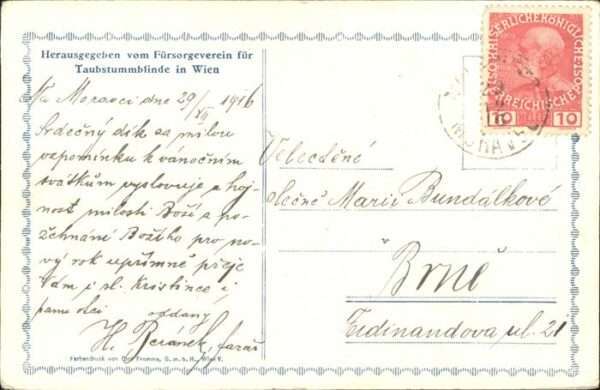 Herausgegeben vom Fürsorgeverein für
Taubstummblinde in Wien
Na Moravci dne 29/XII 1916
Srdečný dík za milou
vzpomínku k vánočním
svátkům vyslovuje a hoj-
nost milosti Boží a po-
žehnání Božího pro no-
vý rok upřímně přeje
Vám i sl. Kristince i
panu otci
oddaný
H. Beránek, farář
Farbendruck von G. m. b. H., Wien
KAISERLICHE KÖNIGLICHE
ÖSTERREICHISCHE POST
10 10
Velectěné
slečně Marii Bundálkové
v
Brně
Ferdinandova ul. 21